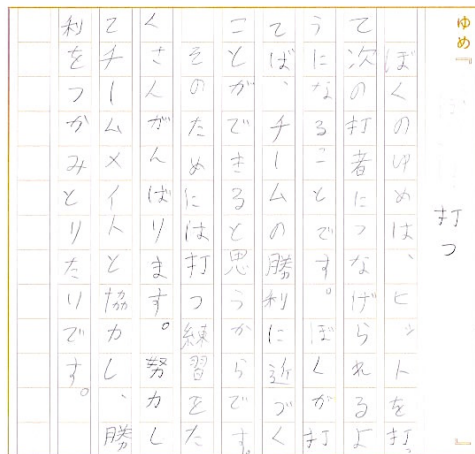 ゆめ『
打つ
』
ぼくのゆめは、ヒットを打っ
て次の打者につなげられるよ
うになることです。ぼくが打
てば、チームの勝利に近づく
ことができると思うからです。
そのためには打つ練習をた
くさんがんばります。努力し
てチームメイトと協力し、勝
利をつかみとりたいです。